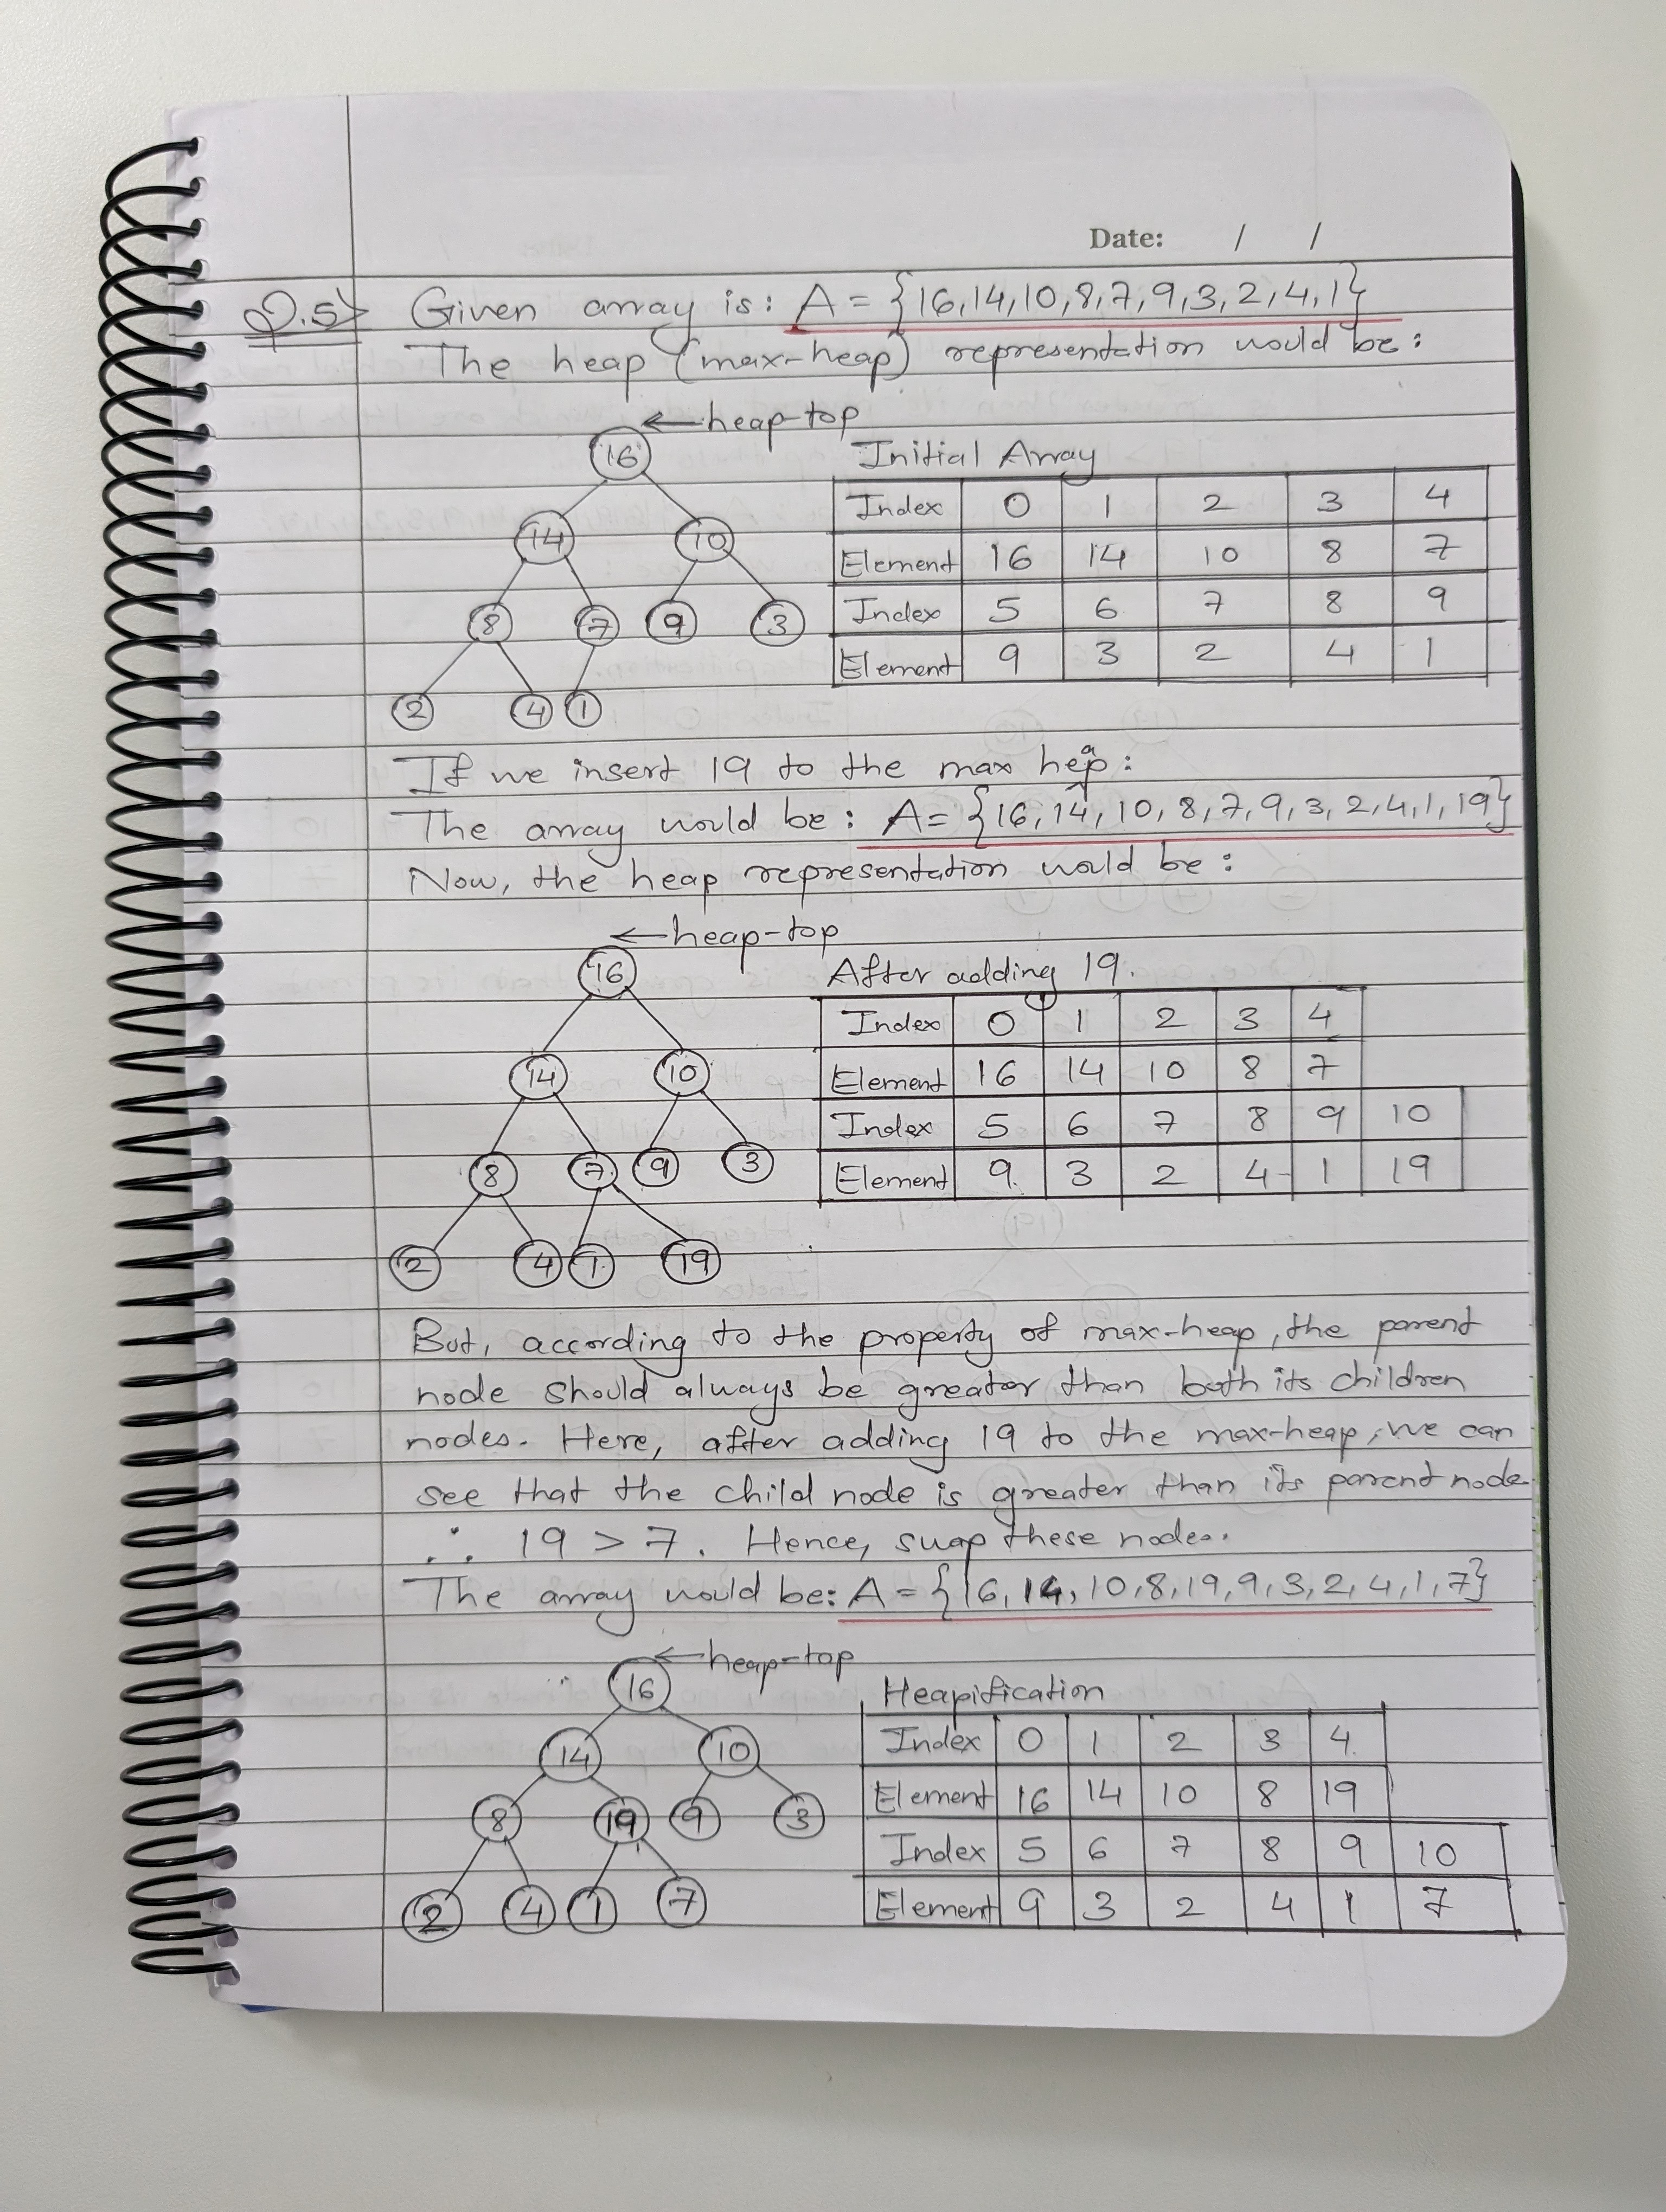 Date: / /
Q.5> Given array is: A = {16,14,10,8,7,9,3,2,4,1}
The heap (max-heap) representation would be:
←heap-top
16
14 10
8 7 9 3
2 4 1
Initial Array
Index 0 1 2 3 4
Element 16 14 10 8 7
Index 5 6 7 8 9
Element 9 3 2 4 1
If we insert 19 to the max heap:
The array would be: A= {16,14,10,8,7,9,3,2,4,1,19}
Now, the heap representation would be:
←heap-top
16
14 10
8 7 9 3
2 4 1 19
After adding 19.
Index 0 1 2 3 4
Element 16 14 10 8 7
Index 5 6 7 8 9 10
Element 9 3 2 4 1 19
But, according to the property of max-heap, the parent
node should always be greater than both its children
nodes. Here, after adding 19 to the max-heap, we can
see that the child node is greater than its parent node.
∴ 19 > 7. Hence, swap these nodes.
The array would be: A = {16,14,10,8,19,9,3,2,4,1,7}
←heap-top
16
14 10
8 19 9 3
2 4 1 7
Heapification
Index 0 1 2 3 4
Element 16 14 10 8 19
Index 5 6 7 8 9 10
Element 9 3 2 4 1 7